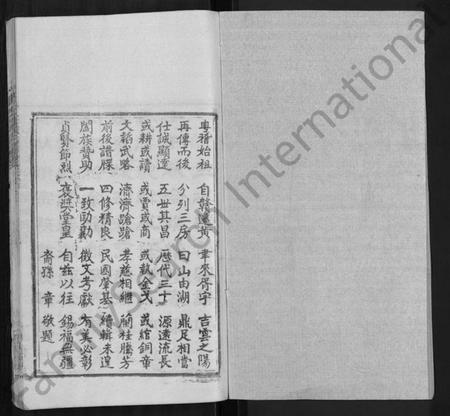 粵稽始祖 自贛隱黃 聿來胥宇 吉雲之陽
再傳而後 分列三房 曰山由湖 鼎足相當
仕誠顯達 五世其昌 歷代三十 源遠流長
或耕或讀 或賈或商 或執金戈 或綰銅章
文韜武略 濟濟蹌蹌 孝慈相繼 蘭桂騰芳
前後譜牒 四修精良 民國肇基 續輯未遑
闔族贊助 一致劻勷 徵文考獻 有美必彰
貞賢節烈 褒獎堂皇 自茲以往 錫福無疆
裔孫 章 敬題
FamilySearch International